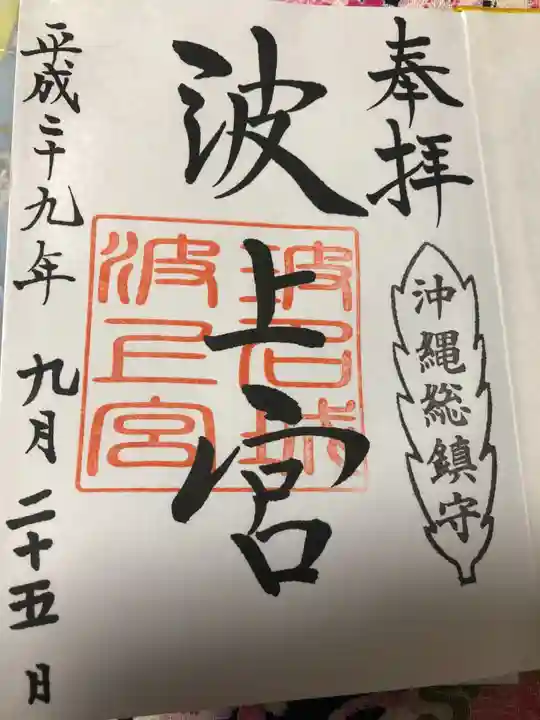 奉拝
沖縄総鎮守
波上宮
波上宮
平成二十九年 九月 二十五 日